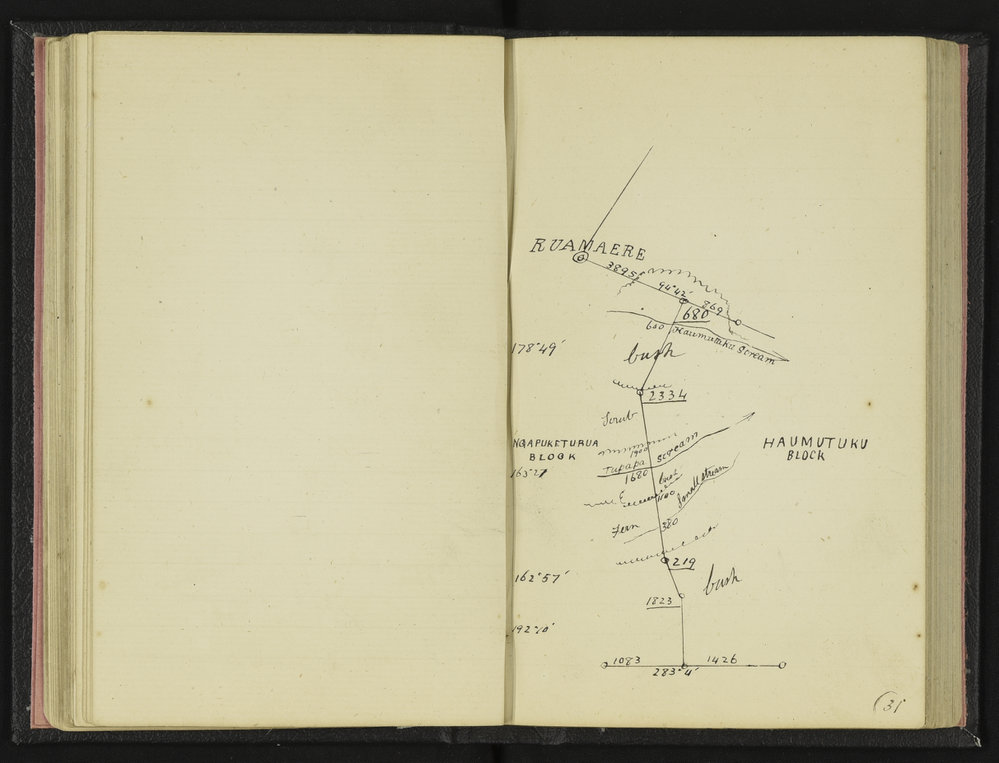 RUAMAERE
3895
94°42'
869
680
680
Haumutuku Stream
178°49'
bush
2334
Scrub
NGAPUKETURUA
BLOCK
HAUMUTUKU
BLOCK
1900
Tupapa Stream
1680
bush
1100
Small stream
Fern
380
162°57'
219
bush
1823
192°10'
1083
1426
283°4'
31